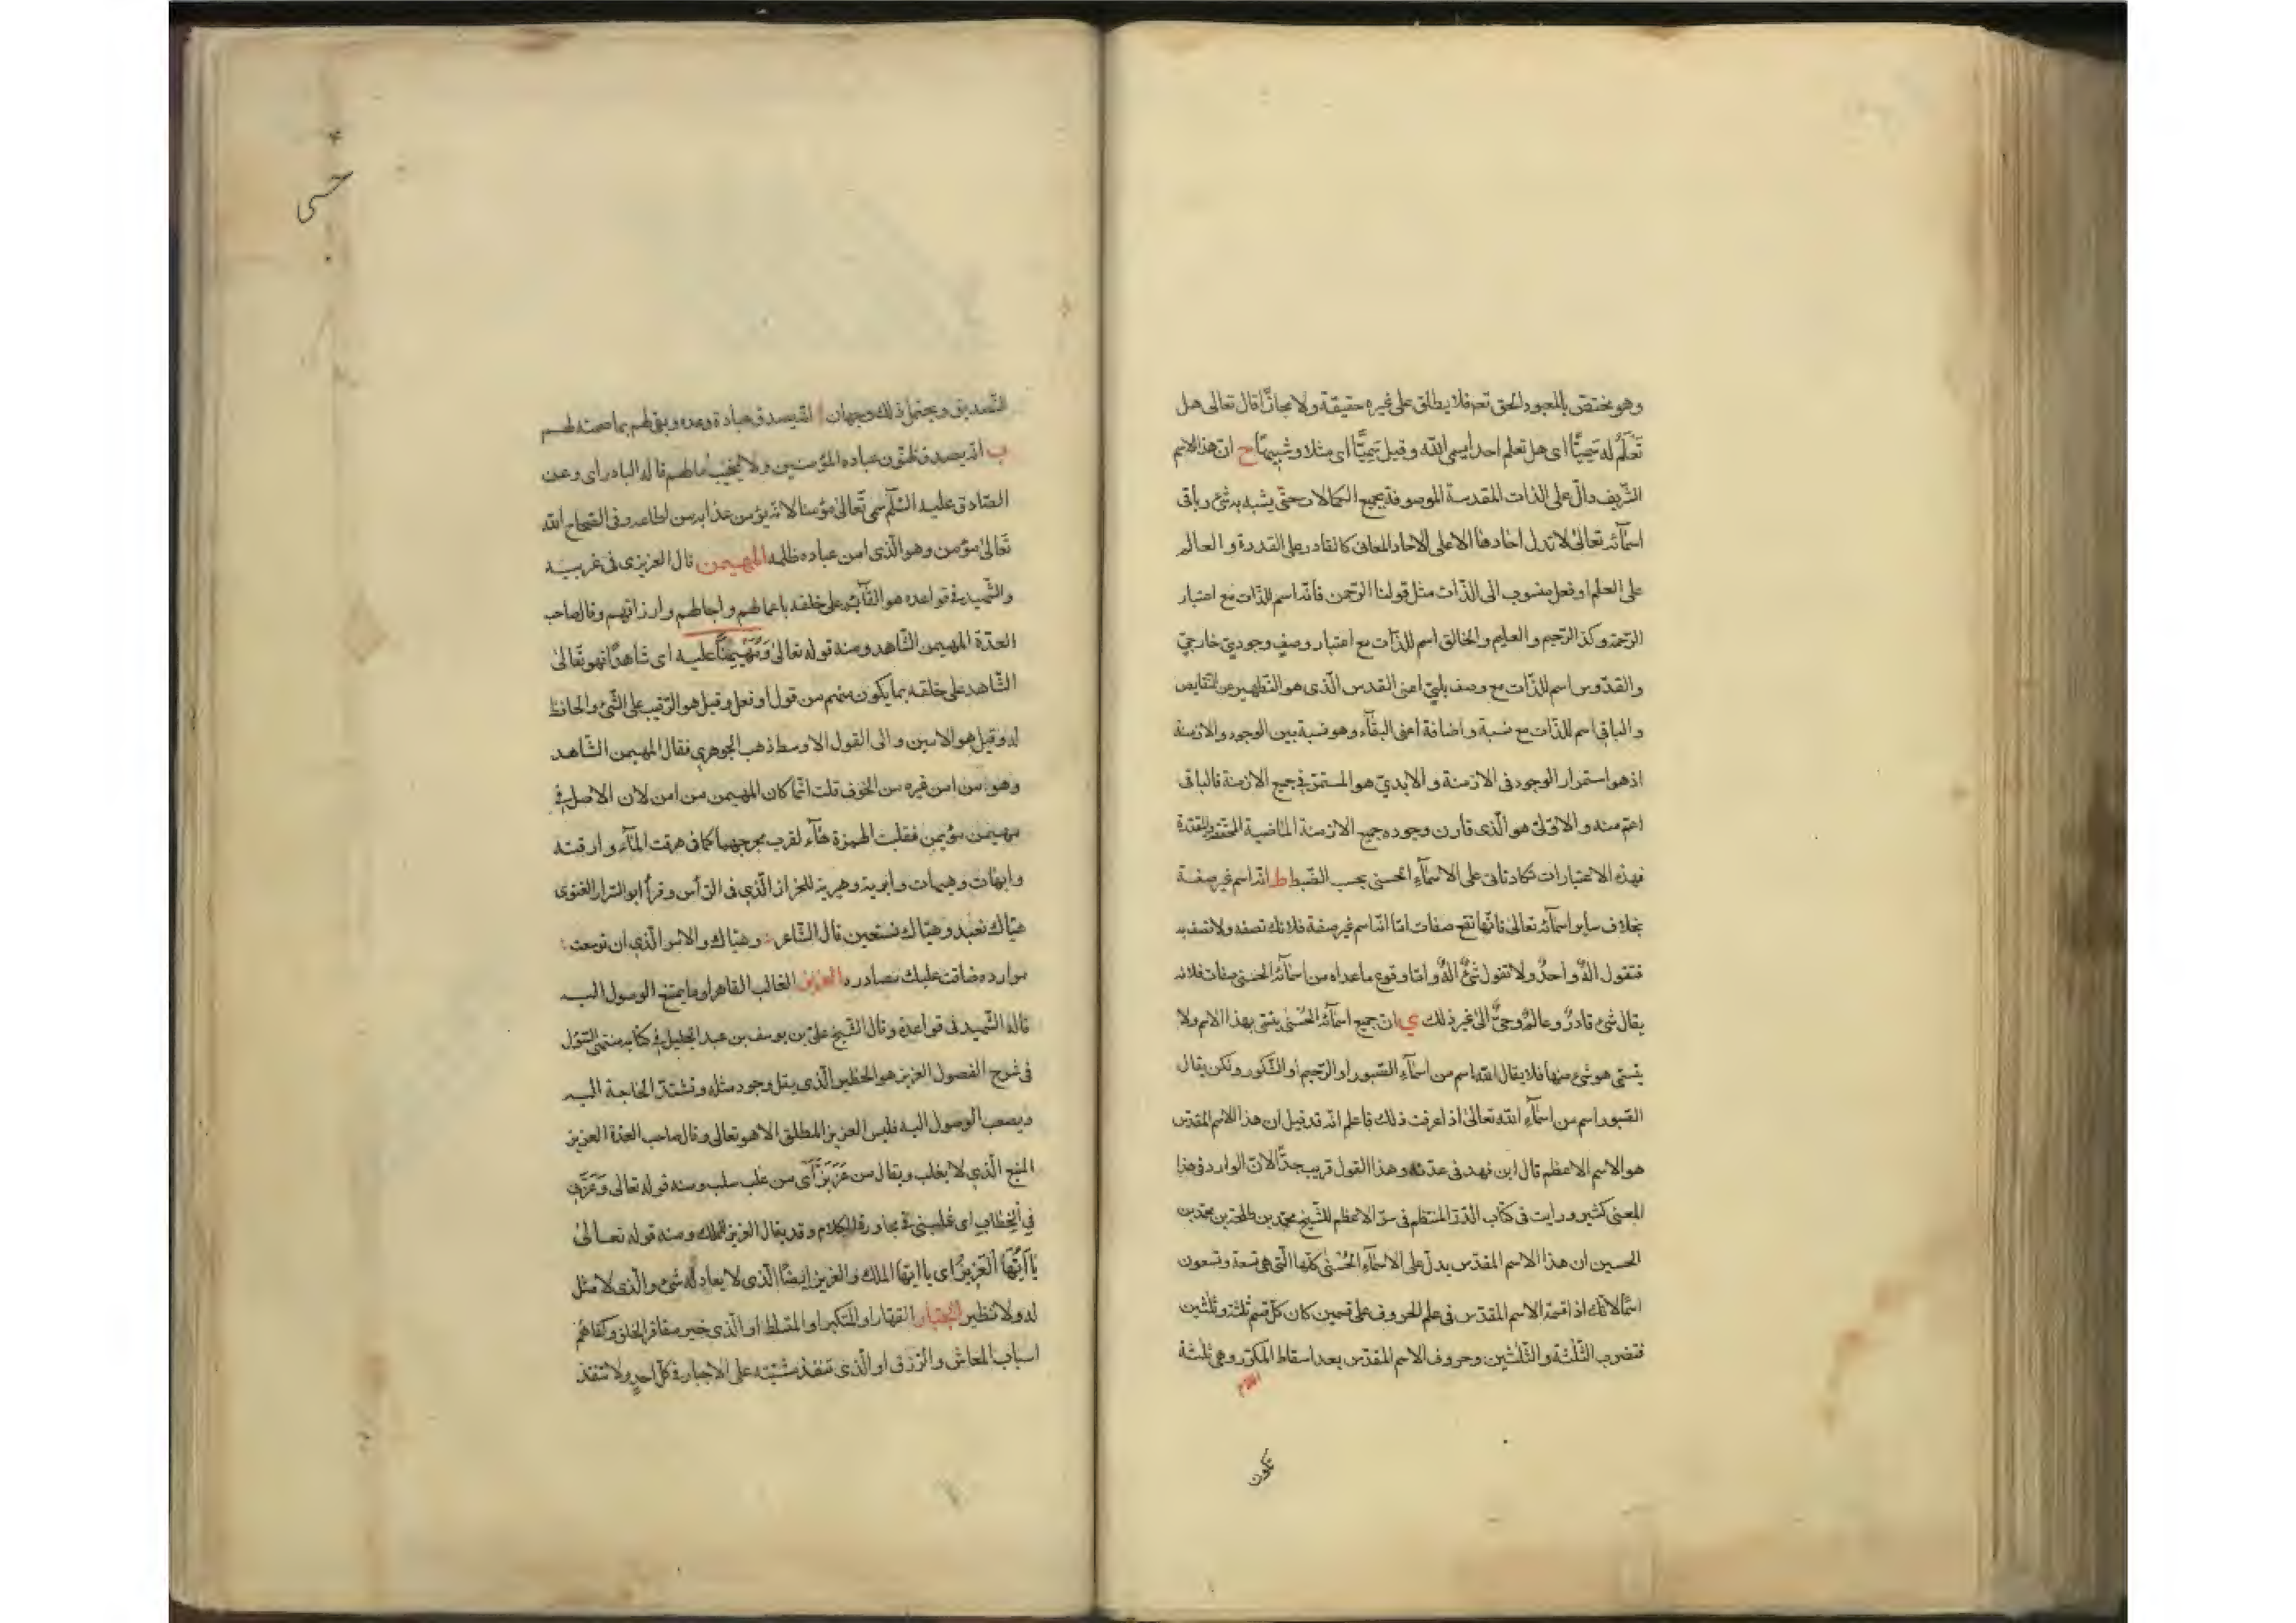 وهو مختص بالمعبود الحق تعم فلا يطلق على غيره حقيقة ولا مجازًا قال تعالى هل
تَعْلَمُ لَه سَمِيًّا اى هل تعلم احدا يسمى الله و قيل سَمِيًّا اى مثلا و شبيهًا ح ان هذا الاسم
الشّريف دالّ على الذات المقدسة الموصوفة بجميع الكمالات حتّى لا يشبه به شئ و باقى
اسمآئه تعالى لا تدل احادها الا على الاحاد المعانى كالقادر على القدرة و العالم
على العلم او فعل منسوب الى الذّات مثل قولنا الرّحمن فانّه اسم للذّات مع اعتبار
الرّحمة و كذا الرّحيم و العليم و الخالق اسم للذّات مع اعتبار وصفٍ وجوديّ خارجيّ
و القدّوس اسم للذّات مع وصف سلبيّ اعنى القدس الّذى هو التّطهير عن النّقايص
و الباقى اسم للذّات مع نسبة و اضافة اعنى البقآء و هو نسبة بين الوجود و الازمنة
اذ هو استمرار الوجود فى الازمنة و الابديّ هو المستمرّ فى جميع الازمنة فالباقى
اعم منه و الازلىّ هو الّذى قارن وجوده جميع الازمنة الماضية المحققة و المقدّرة
فهذه الاعتبارات تكاد تأتى على الاسمآء الحسنى بحسب الضّبط ط انّه اسم غير صفة
بخلاف سائر اسمآئه تعالى فانّها تقع صفات امّا انّه اسم غير صفة فلانك تصفه و لا تصف به
فتقول الهٌ واحدٌ و لا تقول شئٌ الهٌ و امّا وقوع ما عداه من اسمآئه الحسنى صفات فلانه
يقال شئ قادرٌ و عالمٌ و حىٌّ الى غير ذلك ي ان جميع اسمآئه الحُسنى يتسمّى بهذا الاسم و لا
يتسمّى هو بشئ منها فلا يقال الله اسم من اسمآء الصّبور او الرّحيم او الشّكور و لكن يقال
الصّبور اسم من اسمآء الله تعالى اذا عرفت ذلك فاعلم انّه قد قيل ان هذا الاسم المقدّس
هو الاسم الاعظم قال ابن فهد فى عدّته و هذا القول قريب جدًّا لانّ الوارد فى هذا
المعنى كثير و رايت فى كتاب الدّر المنتظم فى سرّ الاعظم للشّيخ محمّد بن طلحة بن محمّد بن
الحسين ان هذا الاسم المقدّس يدلّ على الاسمآء الحُسْنى كلّها الّتى هى تسعة و تسعون
اسمًا لانّك اذا قسمت الاسم المقدّس فى علم الحروف على قسمين كان كلّ قسم ثلثة و ثلثين
فتضرب الثّلثة و الثّلثين و حروف الاسم المقدّس بعد اسقاط المكرّر و هى ثلثة
تكون
حسنى
التّصديق و يحتمل ذلك وجهان ا انّه يصدق عباده وعده و يفى لهم بما ضمنه لهم
ب انّه يصدق ظنون عباده المؤمنين و لا يخيّب امالهم قاله البادراى و عن
الصّادق عليه السّلم سمّى تعالى مؤمنا لانّه يؤمن عذابه من اطاعه و فى الصّحاح الله
تعالى مؤمن و هو الّذى امن عباده ظلمه المهيمن قال العزيزى فى غريبيه
و الشّهيد فى قواعده هو القآئم على خلقه باعمالهم و اجالهم و ارزاقهم و قال صاحب
العدّة المهيمن الشّاهد و منه قوله تعالى وَ مُهَيْمِنًا عليه اى شاهدًا فهو تعالى
الشّاهد على خلقه بما يكون منهم من قول او فعل و قيل هو الرّقيب على الشّئ و الحافظ
له و قيل هو الامين و الى القول الاوسط ذهب الجوهرى فقال المهيمن الشّاهد
و هو من امن غيره من الخوف قلت انّما كان المهيمن من امن لان الاصل فى
مهيمن مؤيمن فقلبت الهمزة هآء لقرب مخرجهما كما فى هرقت المآء و ارقته
و ايهات و هيهات و ابرية و هبرية للخزاز الّذي فى الرّأس و قرأ ابو السّرار الغنوى
هيّاك نعبد و هيّاك نستعين قال الشّاعر و هيّاك و الامر الّذي ان توسعت
موارده ضاقت عليك مصادره العزيز الغالب القاهر او ما يمتنع الوصول اليه
قاله الشّهيد فى قواعده و قال الشّيخ علىّ بن يوسف بن عبد الجليل فى كتابه منتهى السّؤل
فى شرح الفصول العزيز هو الخطير الّذى يقلّ وجود مثله و تشتدّ الحاجة اليه
و يصعب الوصول اليه فليس العزيز المطلق الّا هو تعالى و قال صاحب العدّة العزيز
المنيع الّذي لا يغلب و يقال من عَزَّ بَزَّ اى من غلب سلب و منه قوله تعالى وَ عَزَّنِى
فِى الْخِطَابِ اى غلبنى فى محاورة الكلام و قد يقال العزيز للملك و منه قوله تعالى
يَا اَيُّهَا الْعَزِيزُ اى يا ايّها الملك و العزيز ايضًا الّذى لا يعادله شئ و الّذى لا مثل
له و لا نظير الجبّار القهّار او المتكبّر او المتسلّط او الّذى جبر مفاقر الخلق و كفاهم
اسباب المعاش و الرّزق او الّذى تنفذ مشيّته على الاجبار فى كلّ احدٍ و لا تنفذ